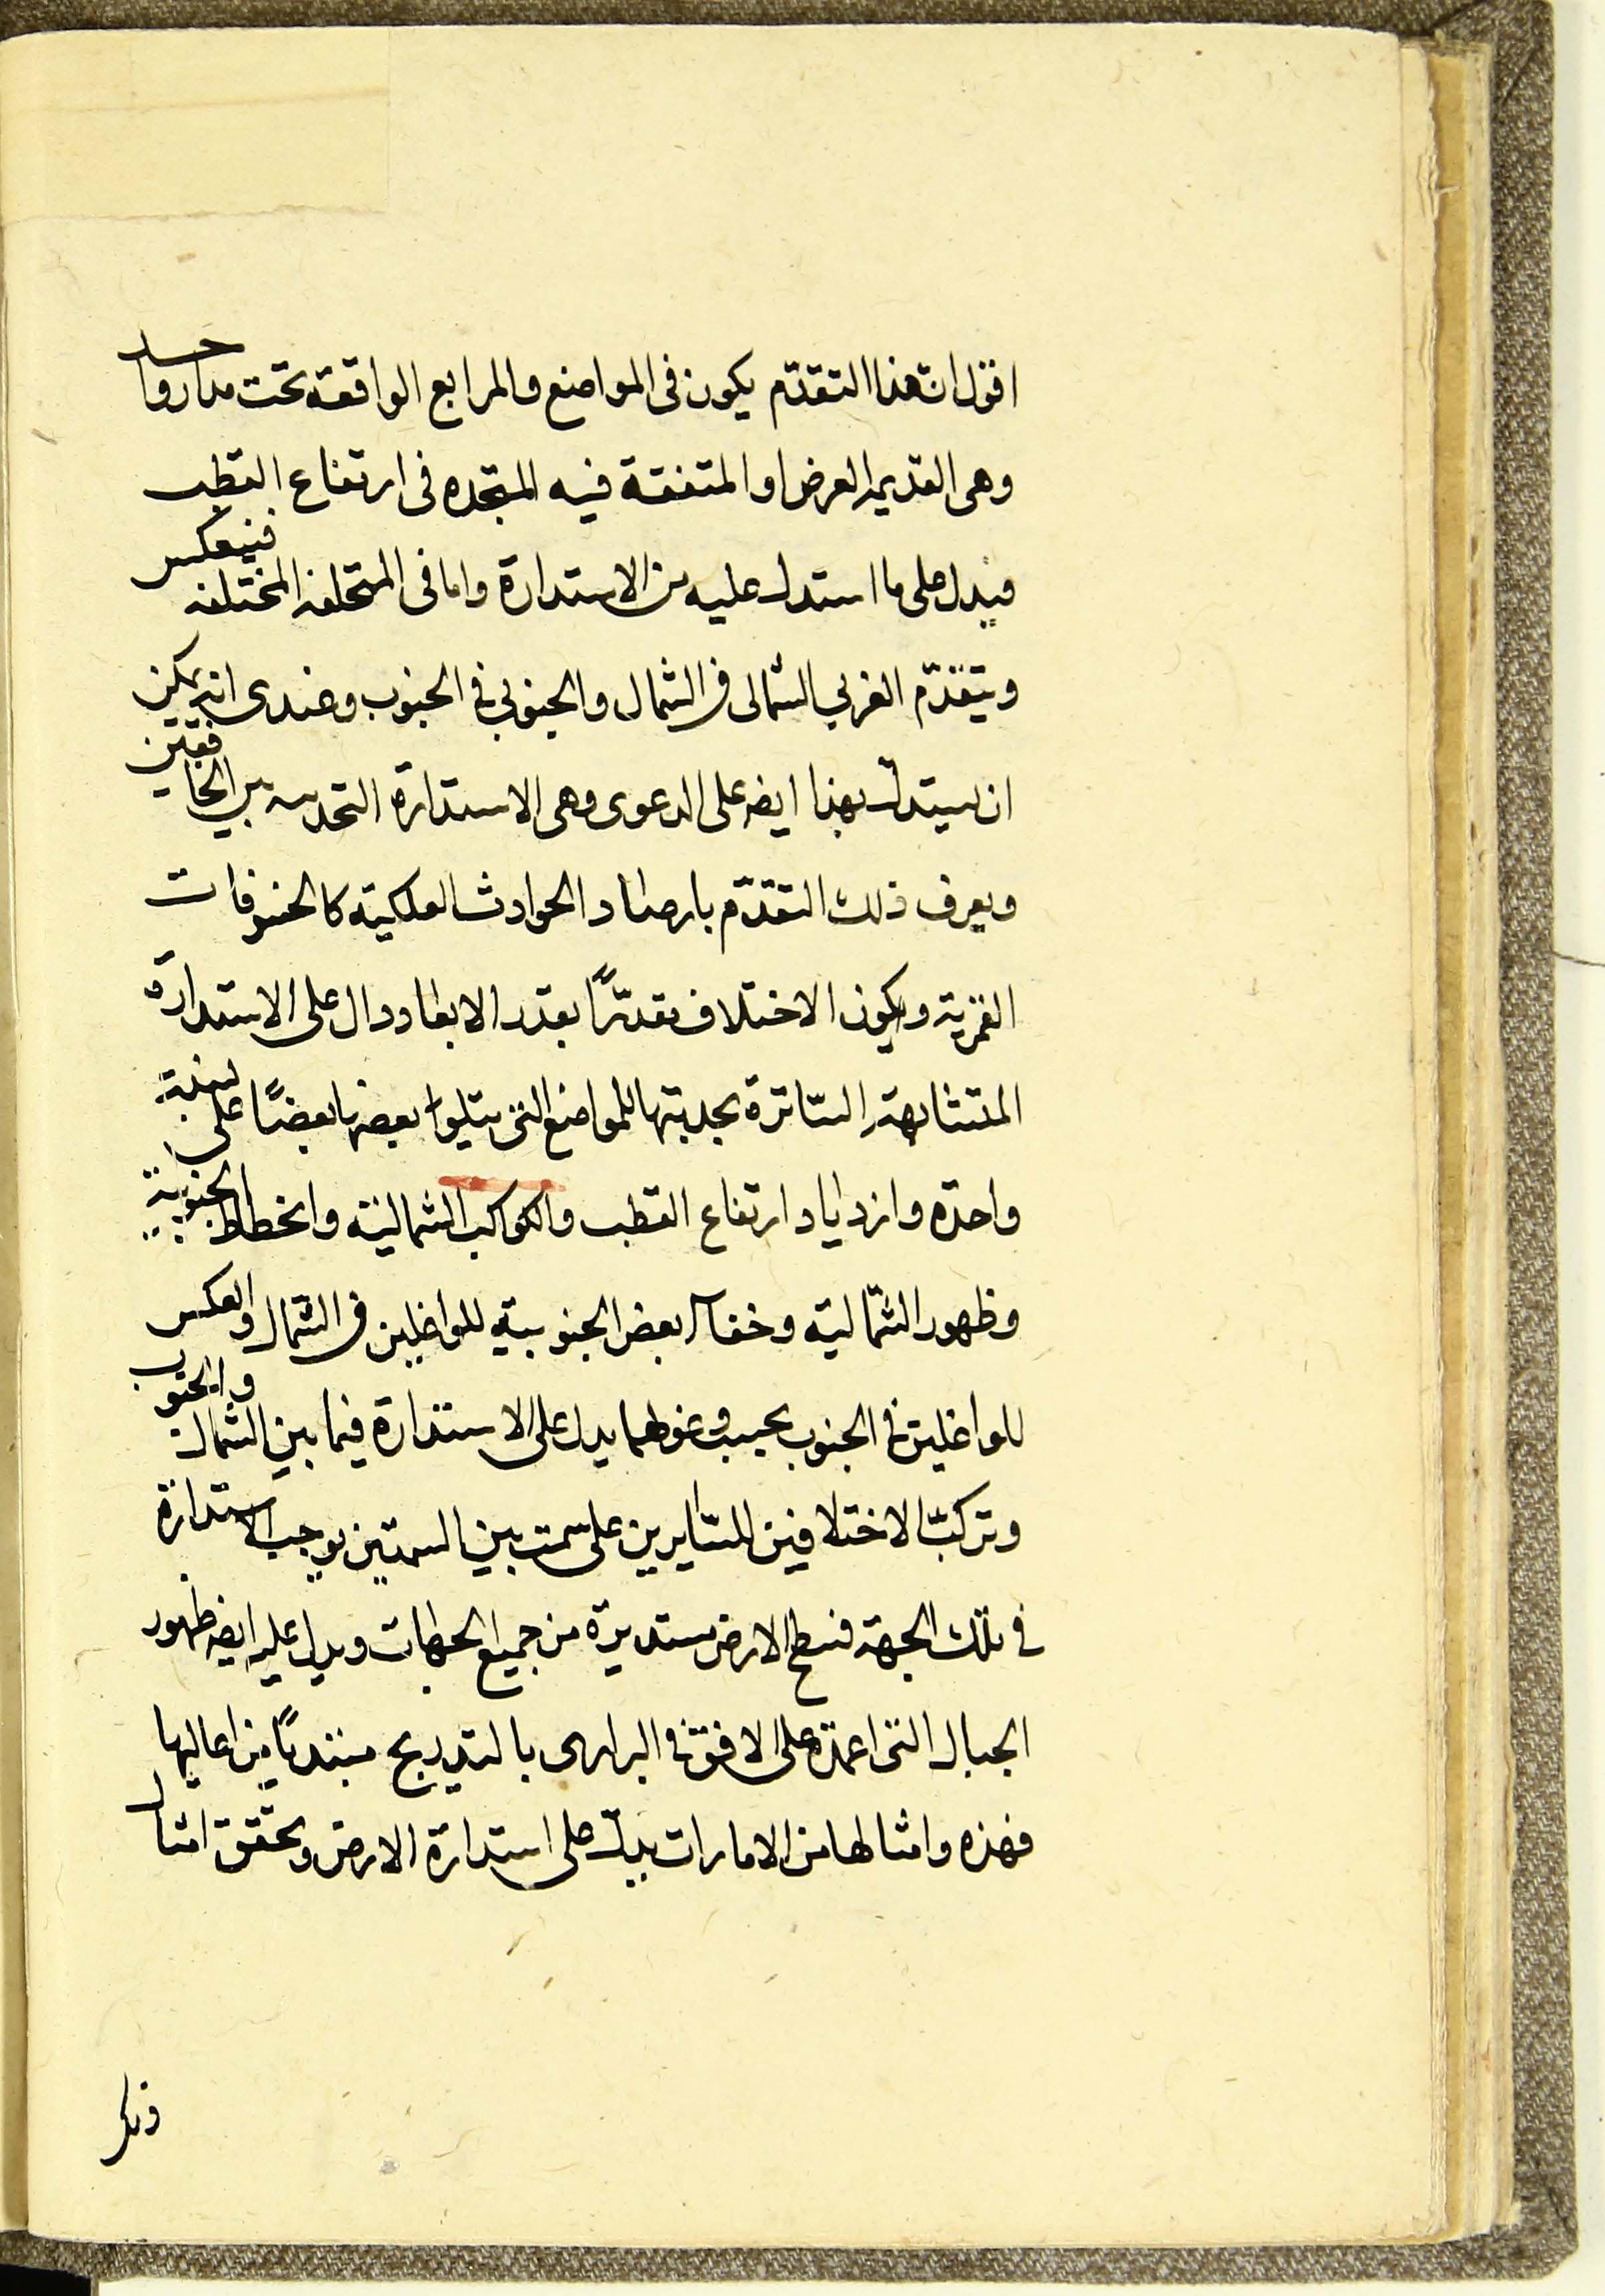 اقول ان هذا التقدّم يكون فى المواضع والمرابع الواقعة تحت مدار واحد
وهى القديمة العرض او المتفقة فيه المتحده فى ارتفاع القطب
فيدل على ما استدل عليه من الاستدارة واما فى المختلفه فينعكس
ويتقدّم الغربي الشمالى فى الشمال والجنوبي فى الجنوب وعندى انه يمكن
ان يستدل بهذا ايضه على الدعوى وهى الاستدارة بين الخافقين
ويعرف ذلك التقدّم بارصاد الحوادث الفلكية كالخسوفات
القمرية ويكون الاختلاف مقدّرًا بقدر الابعاد دال على الاستدارة
المتشابهة الساترة بحدبتها للمواضع التى يتلوا بعضها بعضًا على نسبة
واحدة وازدياد ارتفاع القطب والكواكب الشمالية وانحطاط الجنوبية
وظهور الشمالية وخفاء بعض الجنوبية للواغلين فى الشمال والعكس
للواغلين فى الجنوب بحسب وغولهما يدل على الاستدارة فيما بين الشمال والجنوب
وتركب الاختلافين للسّايرين على سمت بين السمتين يوجب الاستدارة
فى تلك الجهة فسطح الارض مستديرة من جميع الجهات ويدل عليه ايضه ظهور
الجبال التى على الافق فى البرارى بالتدريج مبتديًا من اعاليها
فهذه وامثالها من الامارات يدل على استدارة الارض وتحقق امثال
ذلك